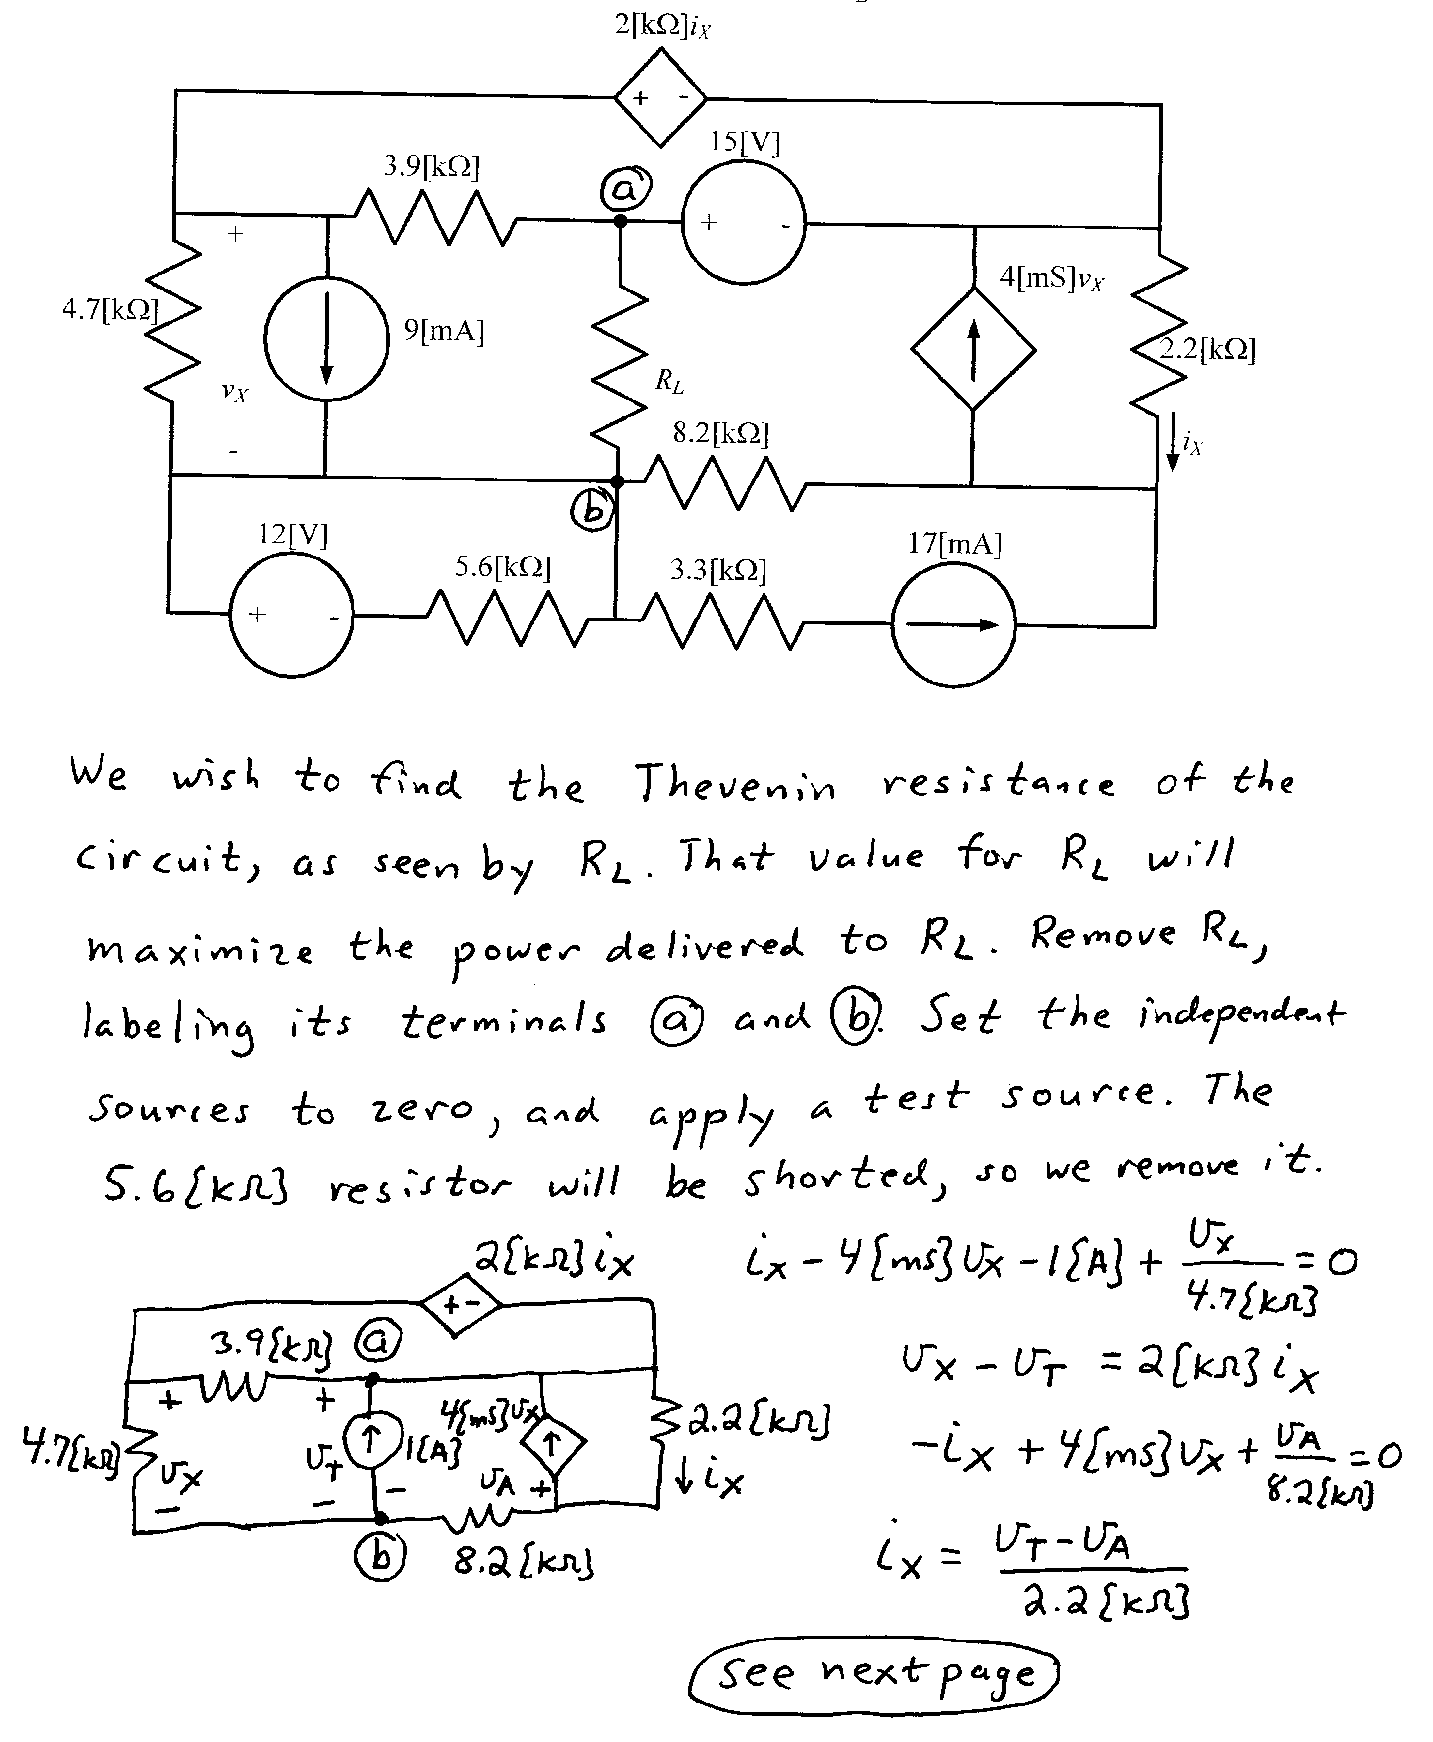 2[kΩ]iX
15[V]
3.9[kΩ]
a
+ -
+ -
+
4.7[kΩ]
9[mA]
vX
-
RL
4[mS]vX
2.2[kΩ]
iX
8.2[kΩ]
b
12[V]
+ -
5.6[kΩ]
3.3[kΩ]
17[mA]
We wish to find the Thevenin resistance of the
circuit, as seen by RL. That value for RL will
maximize the power delivered to RL. Remove RL,
labeling its terminals a and b. Set the independent
sources to zero, and apply a test source. The
5.6[kΩ] resistor will be shorted, so we remove it.
2[kΩ]iX
+ -
3.9[kΩ] a
+ +
4.7[kΩ] vX vT 1[A] 4[mS]vX 2.2[kΩ]
- - - vA + iX
b 8.2[kΩ]
iX - 4[mS]vX - 1[A] + vX/4.7[kΩ] = 0
vX - vT = 2[kΩ]iX
-iX + 4[mS]vX + vA/8.2[kΩ] = 0
iX = vT - vA/2.2[kΩ]
see next page